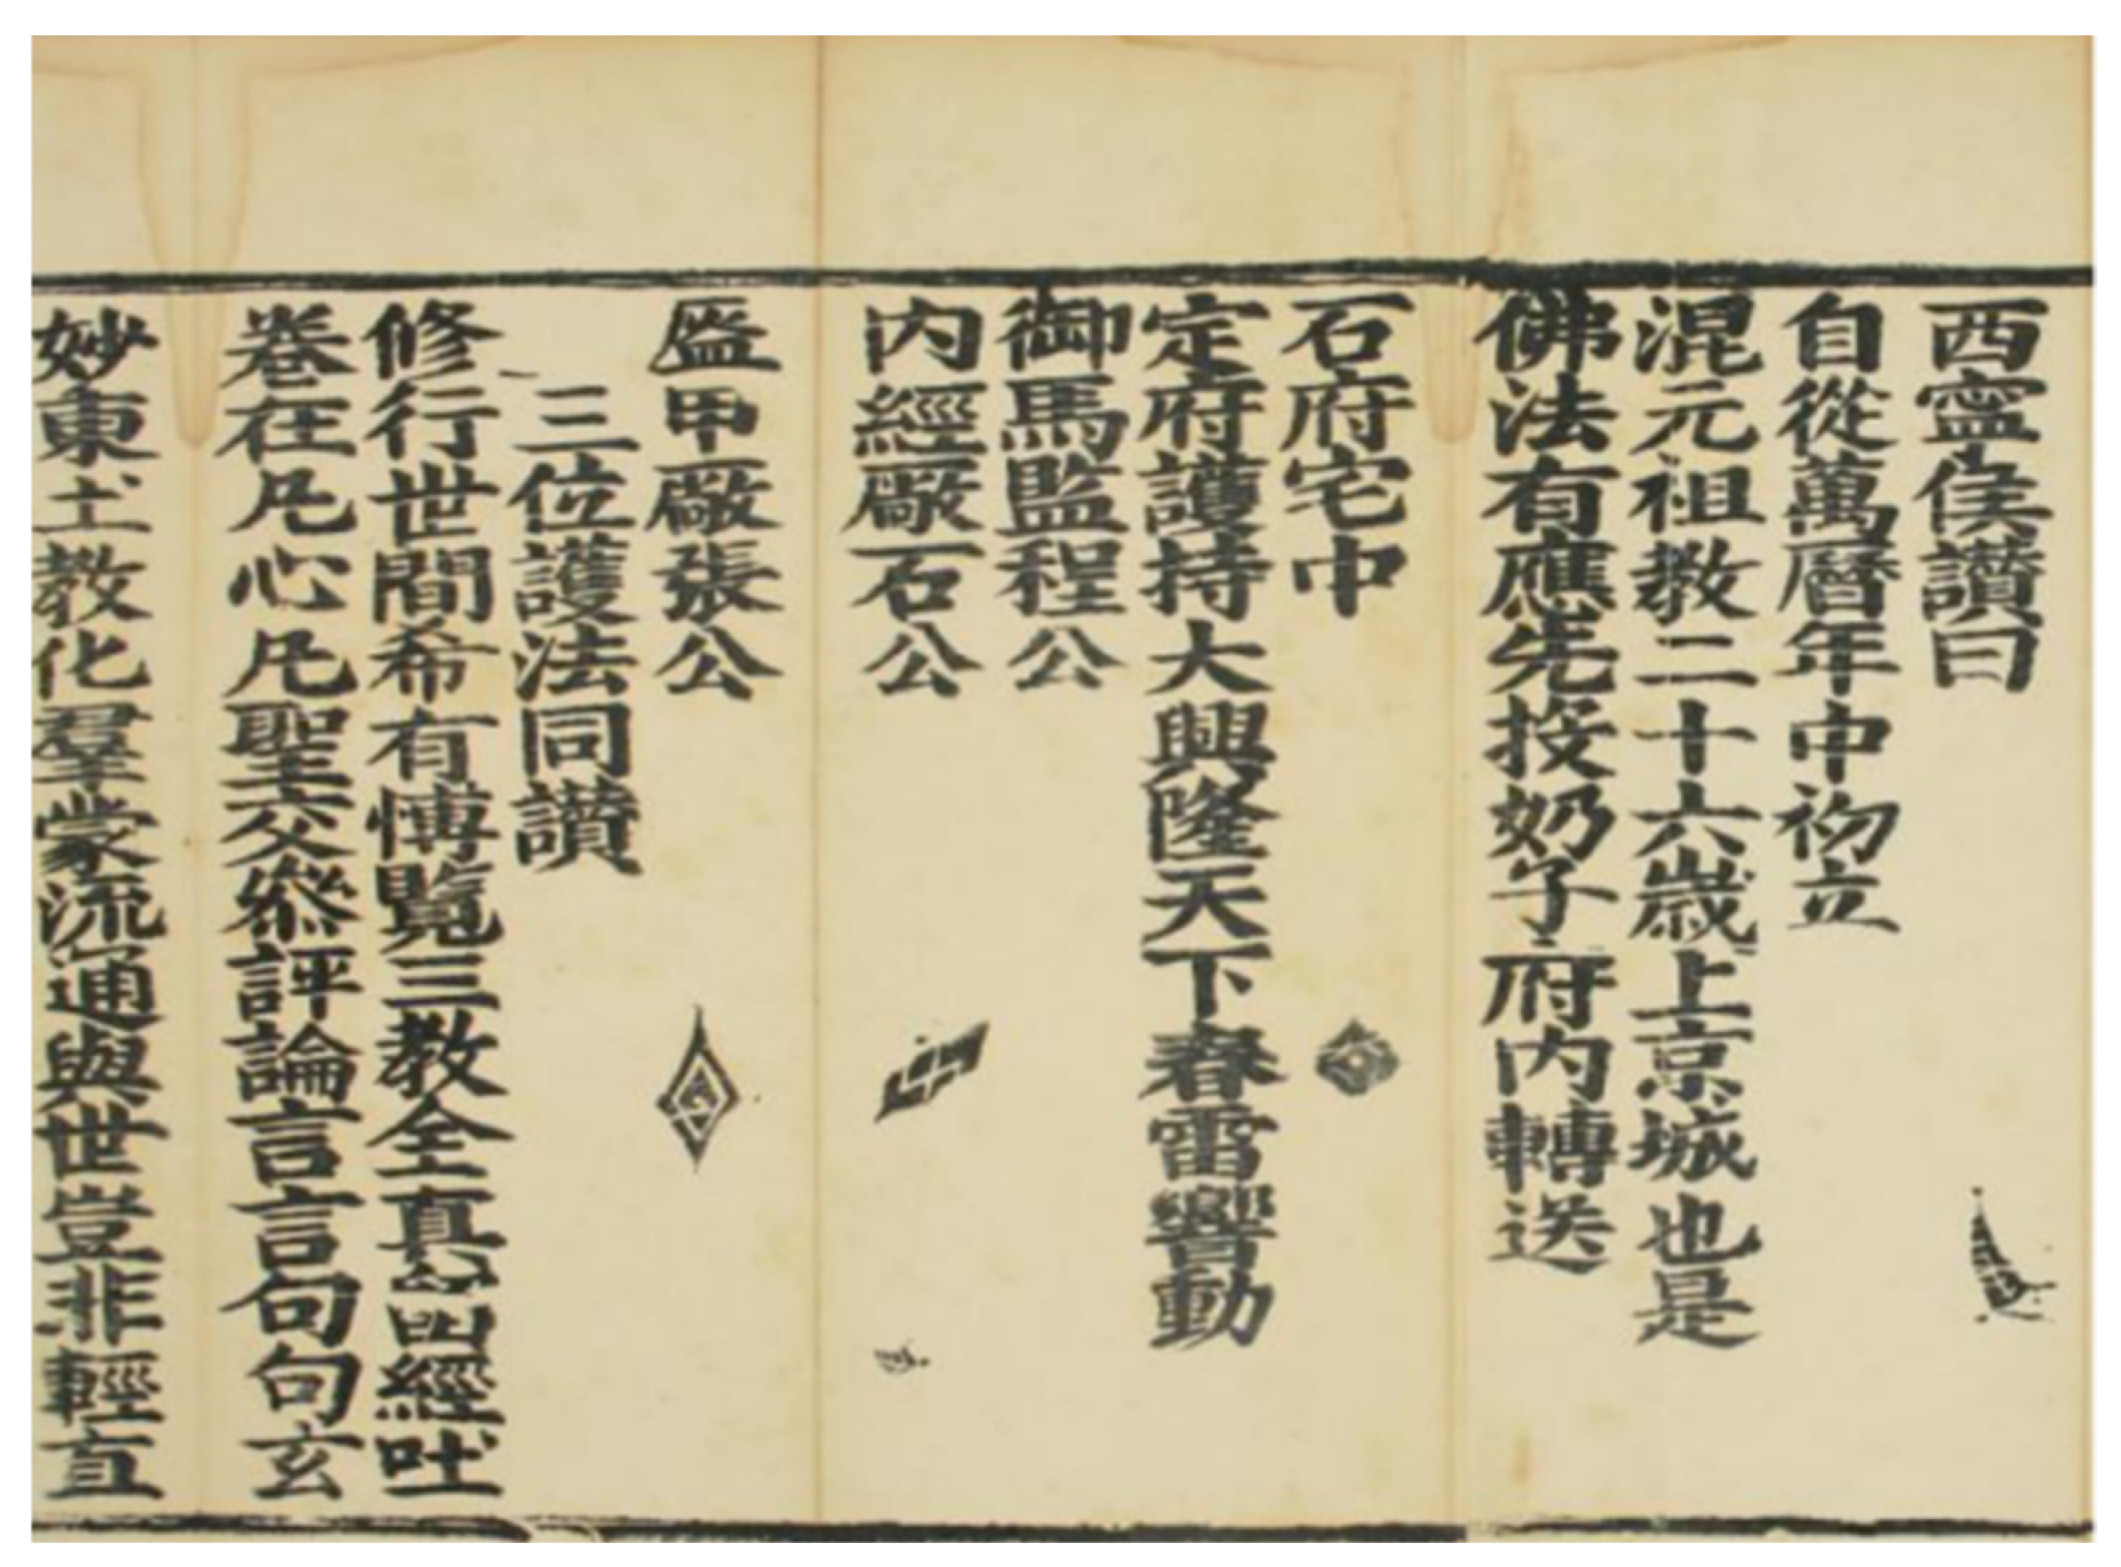 西寧侯讃曰
自從萬曆年中初立
混元祖教二十六歲上京城也是
佛法有應先投奶子府內轉送
石府宅中
定府護持大興隆天下春雷響動
御馬監程公
內經厰石公
盔甲厰張公
三位護法同讃
修行世間希有愽覽三教全真出經吐
卷在凡心凡聖交叅評論言言句句玄
妙東土教化羣蒙流通與世豈非輕直